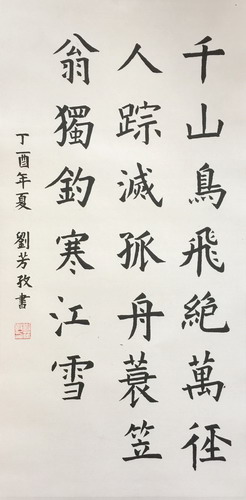 千山鳥飛絶萬徑
人踪滅孤舟蓑笠
翁獨釣寒江雪
丁酉年夏 劉芳孜書